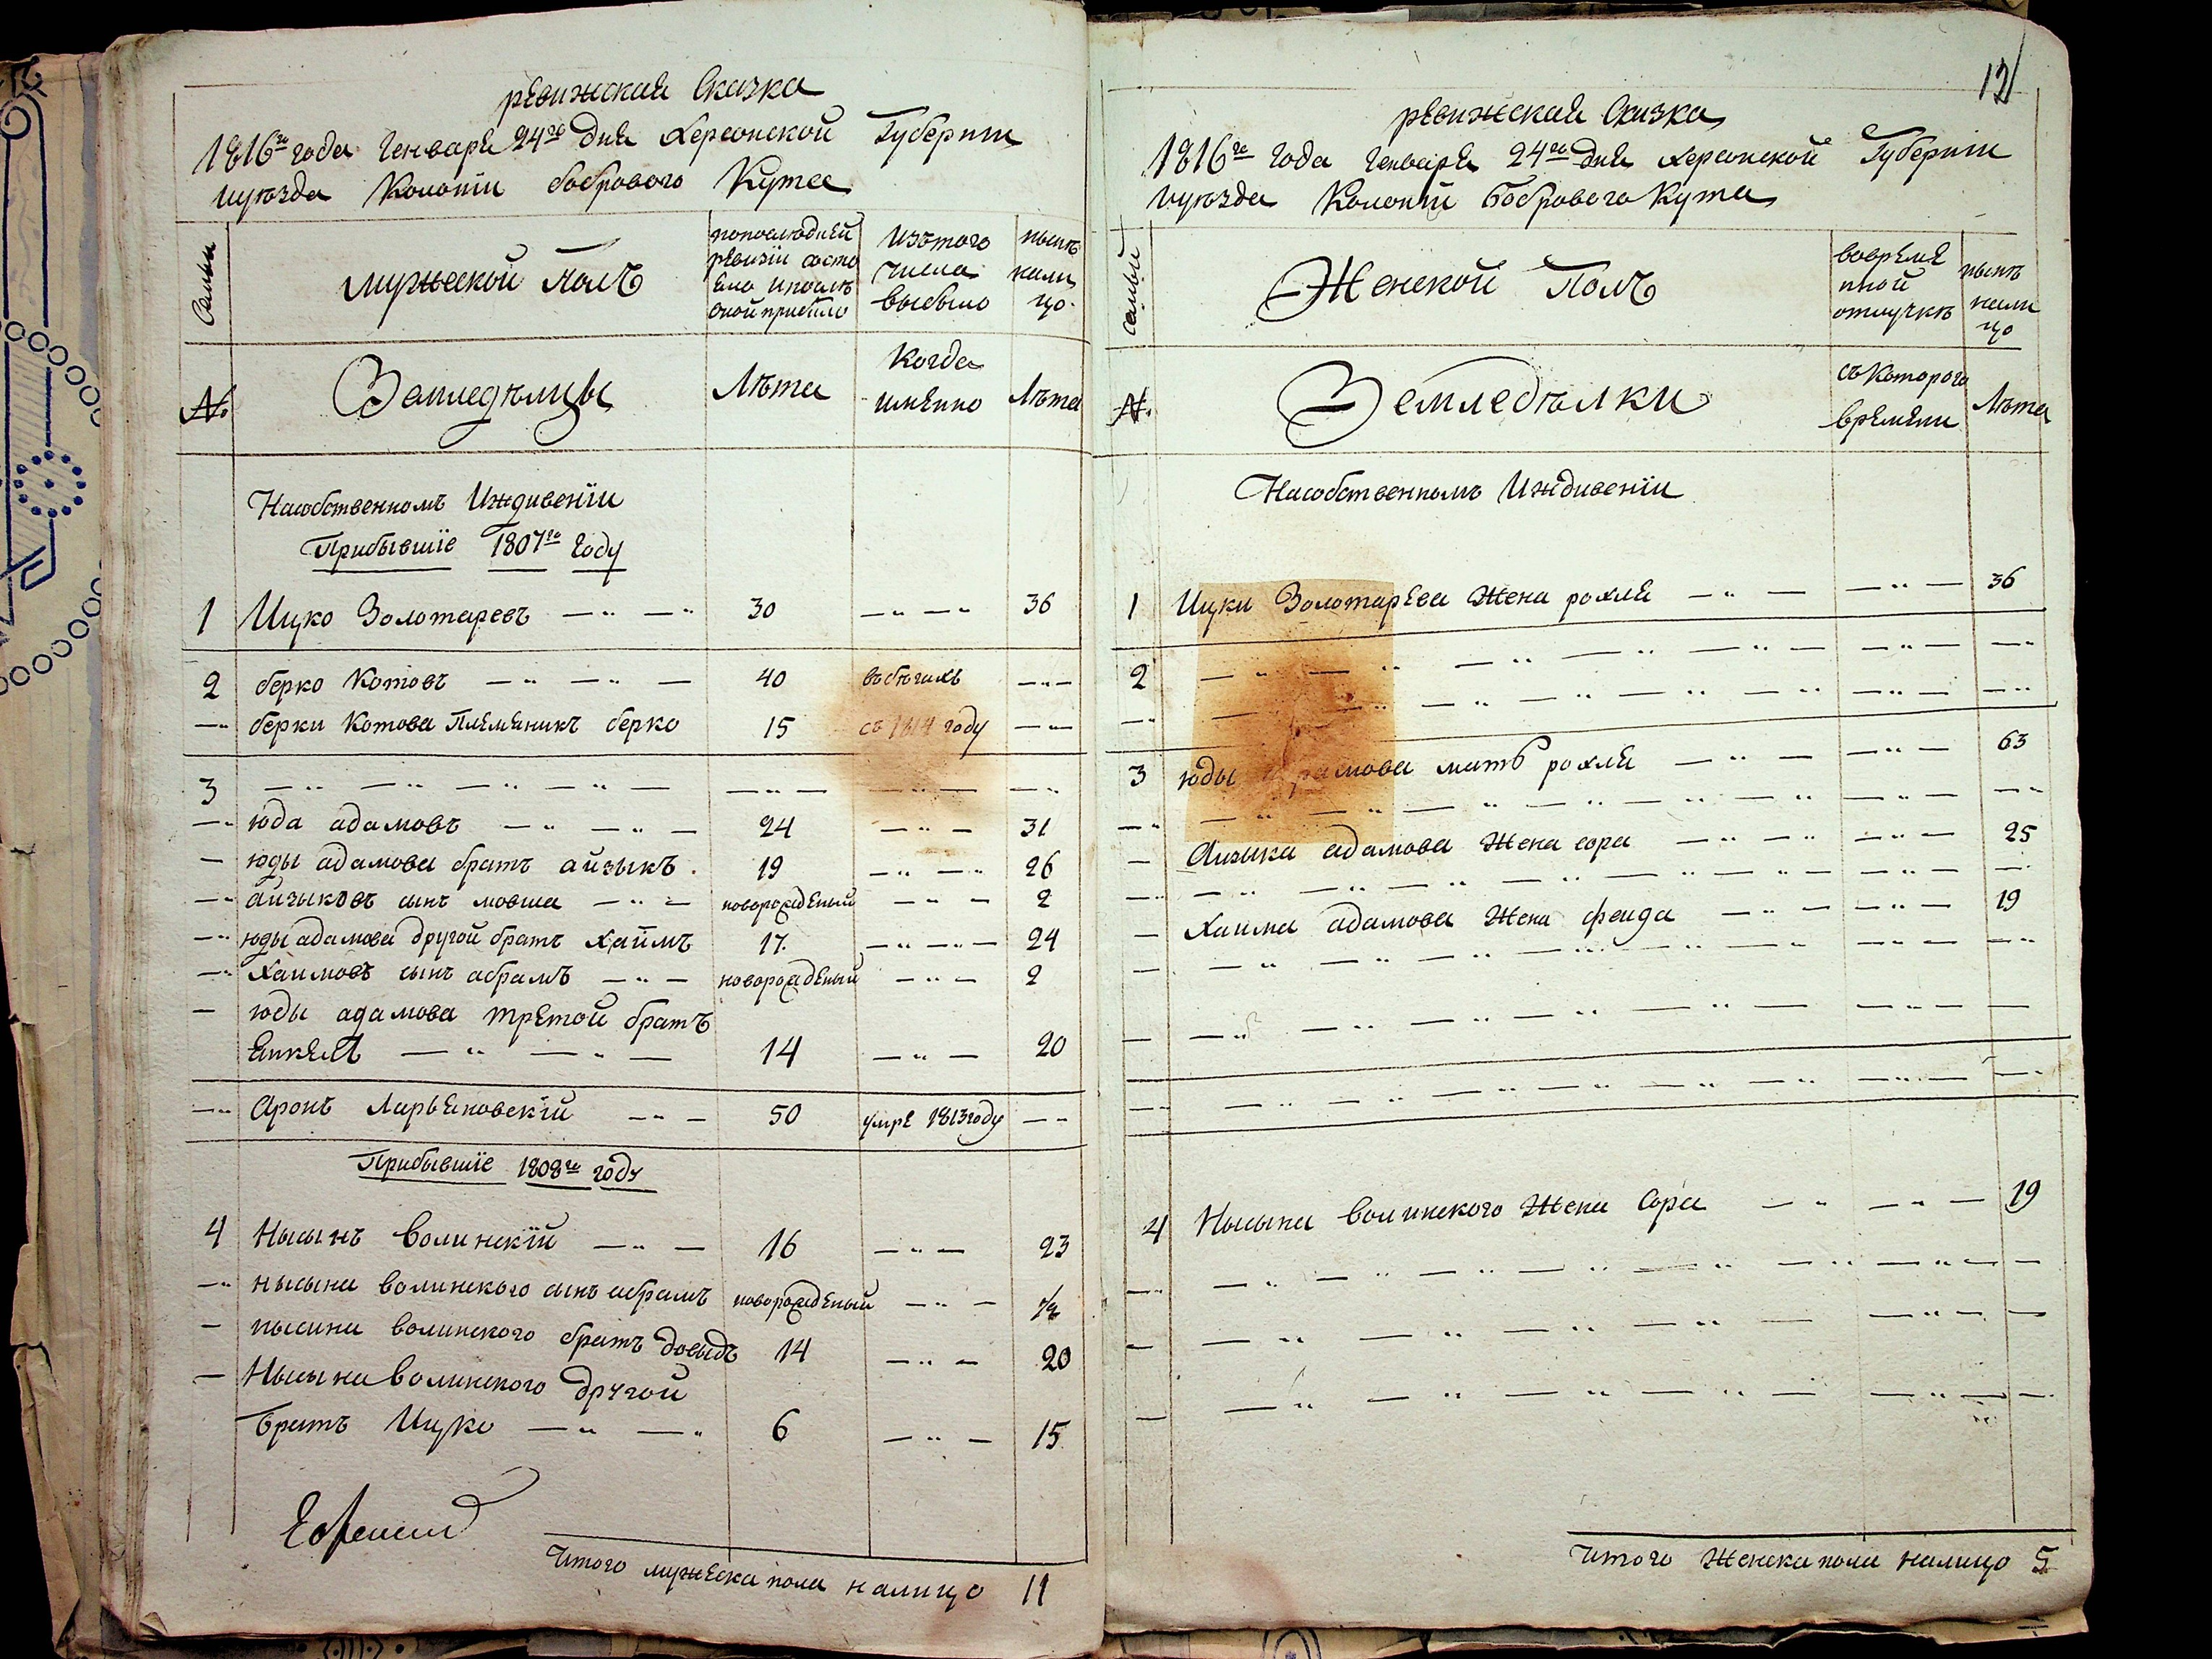 ревижская Сказка
1816го года Генваря 24го дня Херсонской Губернии
иуезда Колонïи бобрового Кута
Семьи
мужеской полъ
попоследней
ревизïи состо
яло ипосле
оной прибыло
изътого
числа
выбыло
ныне
нали
цо
№
Земледельцы
Лѣта
Когда
имянно
Лѣта
Насобственномъ Иждивенïи
Прибывшïе 1807го Году
1 Ицко Золотаревъ — " — " 30 — " — " 36
2 берко Котовъ — " — " — 40 въбегахъ — " —
— " берки Котова Племяникъ берко 15 съ 1814 году — " —
3 — " — " — " — " — — " — — " — — "
— " юда адамовъ — " — " — 24 — " — 31
— юды адамова братъ айзыкъ . 19 — " — " 26
— " айзыковъ сынъ мовша — " — новорожденый — " — 2
— " юды адамова другой братъ хаймъ 17. — " — " — 24
— " Хаимовъ сынъ абрамъ — " — новорожденый — " — 2
— юды адамова третой братъ
Янкель — " — " — 14 — " — 20
— " Аронъ Ларьяновскïй — " — 50 умре 1813году — —
Прибывшïе 1808го году
4 Нысынъ Волинскïй — " — 16 — " — 23
— " нысына волинского сынъ абрамъ новорожденый — " — 1/2
— нысина волинского братъ довыдъ 14 — " — 20
— Нысына Волинского другой
братъ Ицко — " — " 6 — " — 15
Итого мужеска пола налицо 11
12
ревижская Сказка
1816го года Генваря 24го дня Херсонской Губернïи
иуезда Колонïи Бобрового Кута
Семьи
Женской Полъ
вовремя
нной
отлучкѣ
нынѣ
нали
цо
№
Земледѣлки
съ Которого
времяни
Лѣта
Насобственномъ Иждивенïи
1 Ицки Золотарева Жена рохля — " — — " — 36
2 — " — " — " — " — " — — " — — "
— " — " — " — " — " — " — " — — "
3 юды адамова мать рохля — " — — " — 63
— " — " — " — " — " — " — " — — "
— Аизыка адамова Жена сора — " — " — " — 25
— " — " — " — " — " — " — " — — "
— Хаима адамова Жена фейда — " — — " — 19
— — " — " — " — " — " — " — — "
— — " — " — " — " — " — — " — —
— " — " — " — " — " — " — " — — "
4 Нысына волинского Жена Сора — " — " — 19
— " — " — " — " — " — " — " — " — —
— — " — " — " — " — — " — " —
— — " — " — " — " — — " — —
Итого Женска пола налицо 5